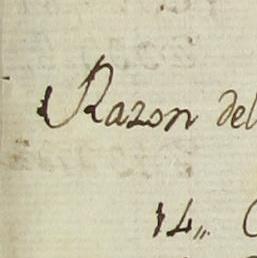 Razon del
14,,